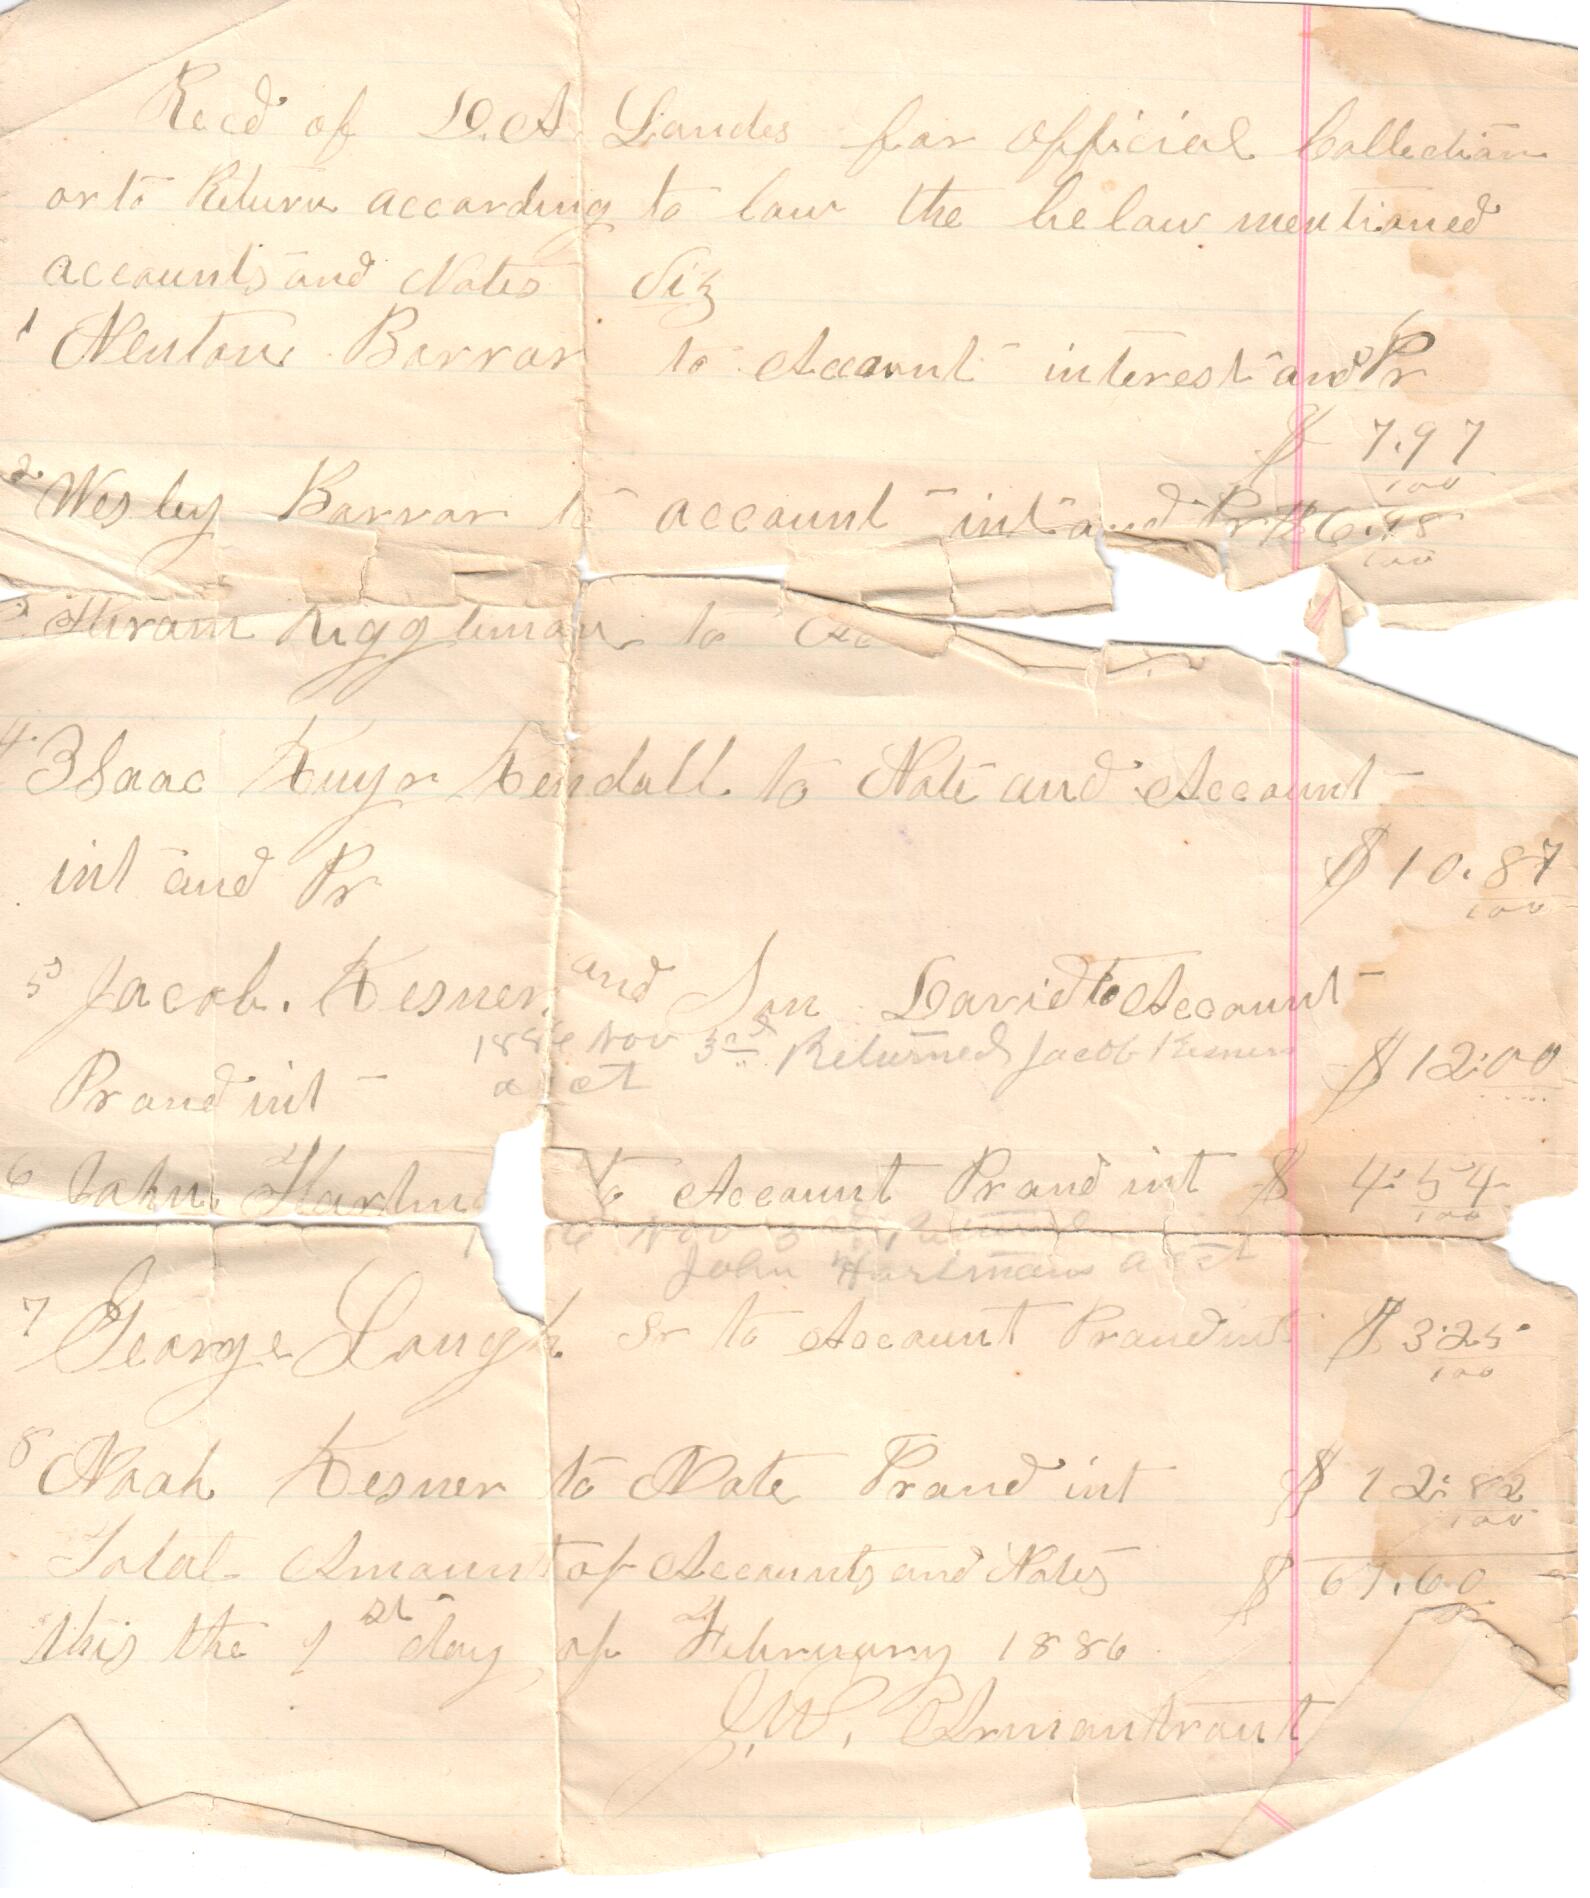 Recd of D. A. Landes for official Collection
or to Return according to law the below mentioned
accounts and Notes Viz
1 Newton Barrar to Account interest and Pr
$ 7.97/100
2 Wesley Barrar to account int and Pr $ 6.48/100
3 Hiram Riggleman to Ac
4 Isaac Kuyr Kendall to Note and Account
int and Pr $10.87/100
5 Jacob Kesner and Son David to Account
1886 Nov 3rd Returned Jacob Kesners
Pr and int acct $12.00
6 John Hartm to Account Pr and int $ 4.54/100
Nov 3 Returned
John Hartmans acct
7 George Lough Sr to Account Pr and int $ 3.25/100
8 Noah Kesner to Note Pr and int $ 12.82/100
Total Amount of Accounts and Notes $ 61.60
this the 1st day of February 1886
J. W. Armantrout